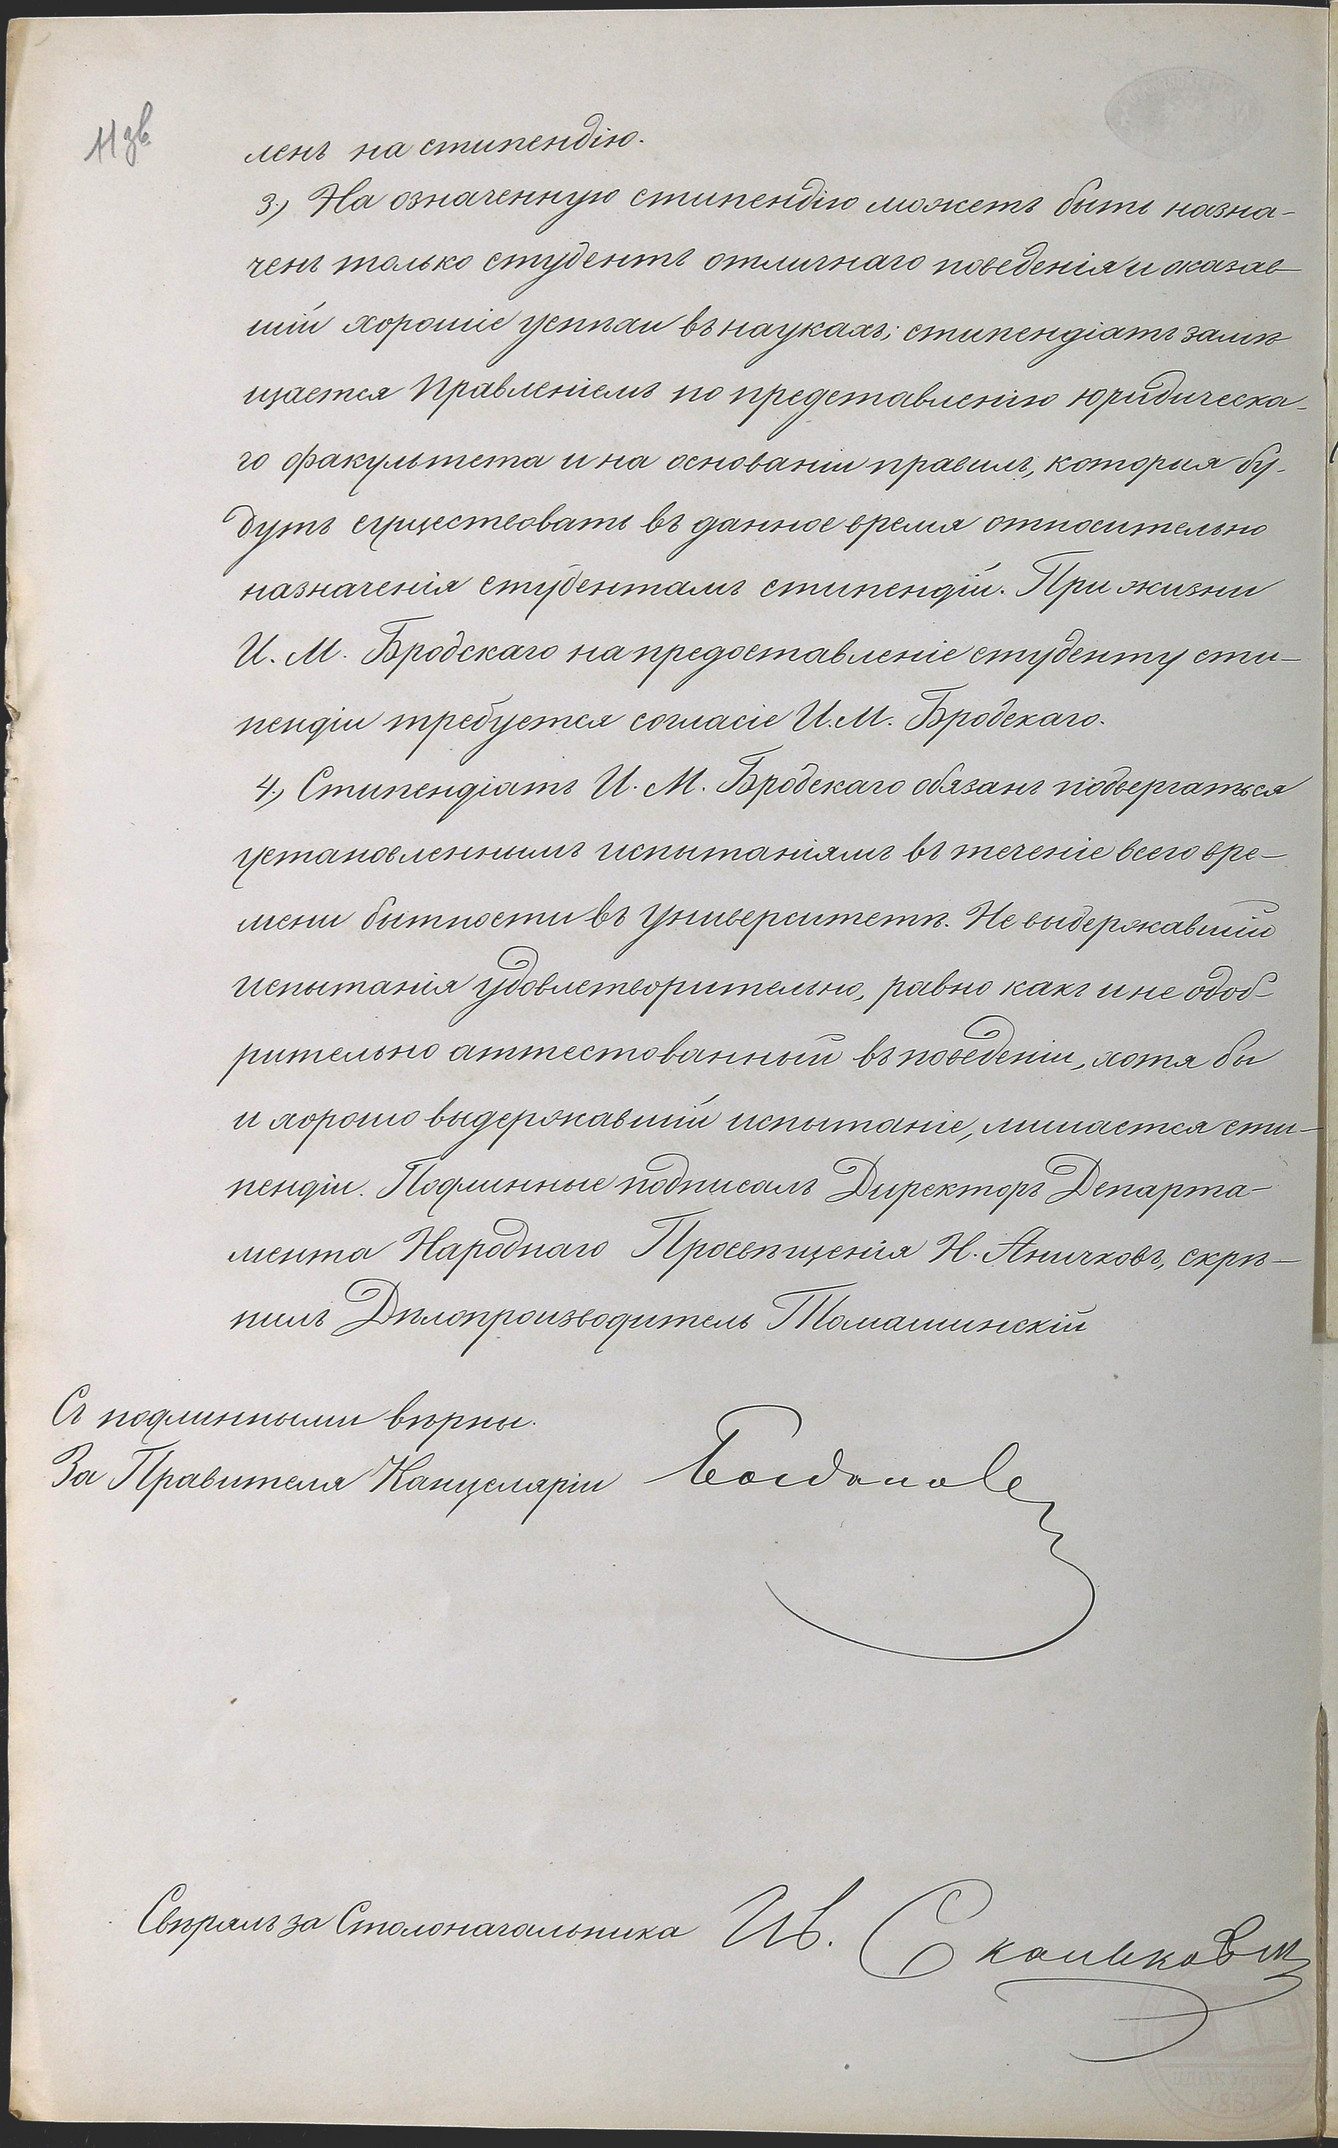 11 зв.
ленъ на стипендію.
3.) На означенную стипендію можетъ быть назна-
ченъ только студентъ отличнаго поведенія и оказав-
шій хорошіе успѣхи въ наукахъ; стипендіатъ замѣ-
щается Правленіемъ по представленію юридическа-
го факультета и на основаніи правилъ, которыя бу-
дутъ существовать въ данное время относительно
назначенія студентамъ стипендій. При жизни
И. М. Бродскаго на предоставленіе студенту сти-
пендіи требуется согласіе И. М. Бродскаго.
4.) Стипендіатъ И. М. Бродскаго обязанъ подвергаться
установленнымъ испытаніямъ въ теченіе всего вре-
мени бытности въ Университетѣ. Не выдержавшій
испытанія удовлетворительно, равно какъ и не одоб-
рительно аттестованный въ поведеніи, хотя бы
и хорошо выдержавшій испытаніе, лишается сти-
пендіи. Подлинные подписалъ Директоръ Департа-
мента Народнаго Просвѣщенія Н. Аничковъ, скрѣ-
пилъ Дѣлопроизводитель Томашинскій
Съ подлинными вѣрны.
За Правителя Канцеляріи Богданов
Свѣрялъ за Столоначальника Ив.